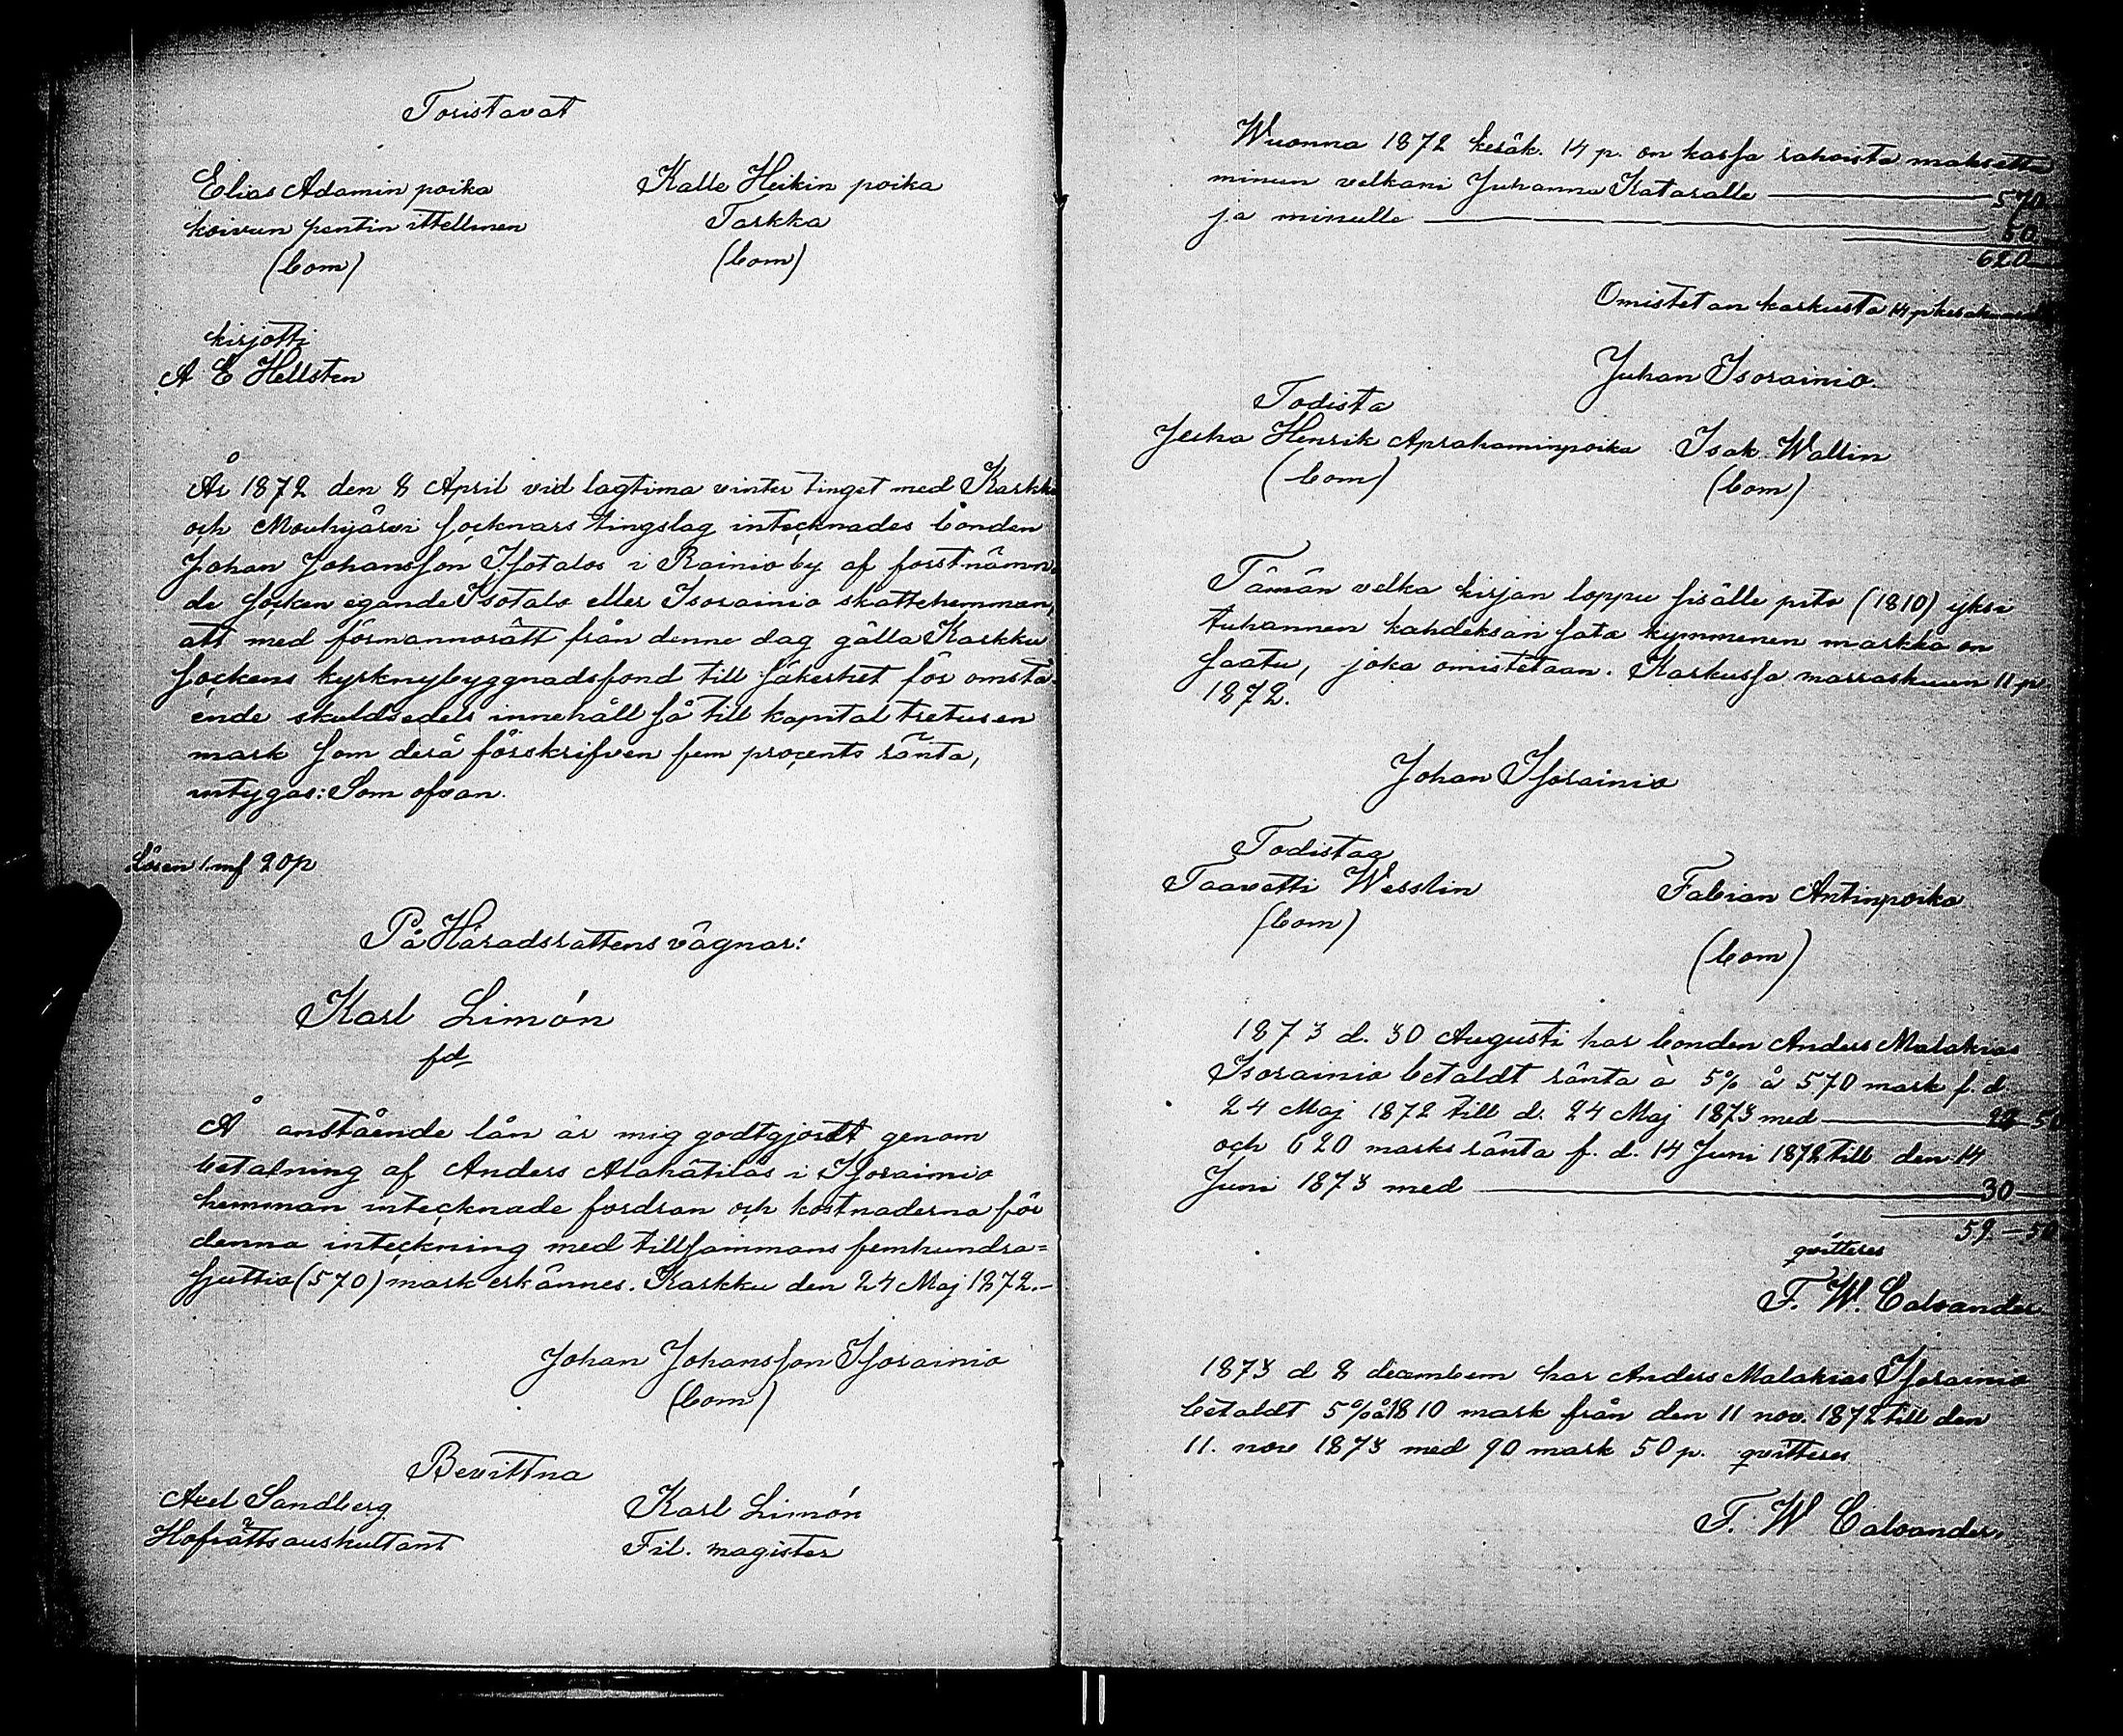 Toristavat
Eolias Adamin poika
koivun pentin ittellinen
(bom)
Kalle Heikin poika
Tarkka
(bom)
kirjotti
A E Hellsten
År 1872 den 8 April vid lagtima vinter tinget med Karkku
och Mouhijärvi socknars tingslag intecknades bonden
Johan Johansson Isotalos i Rainio by af förstnämn-
de socken egande Isotalo eller Isorainio skattehemman,
att med förmånnorätt från denne dag gälla Karkku
sockens kyrknybyggnadsfond till säkerhet för omstå-
ende skuldsedels innehåll så till kapital tretusen
mark som derå förskrifven fem procents ränta,
intygas: Som ofvan.
Lösen 1 mf 20 p
På Häradsrättens vägnar:
Karl Limón
fd
Å anstående lån är mig godtgjordt genom
betalning af Anders Alahätiläs i Isorainio
hemman intecknade fordran och kostnaderna för
denna inteckning med tillsammans femhundra=
sjuttio (570) mark erkännes. Karkku den 24 Maj 1872.-
Johan Johansson Isorainio
(bom)
Bevittna
Axel Sandberg
Hofrättsauskultant
Karl Limón
Fil. magister
Wuonna 1872 kesäk. 14 p. on kassa rahoista maksettu
minun velkani Juhanna Kataralle — 570
ja minulle — 50
620
Omistetan karkusta 14 p kesakuussa
Juhan Isorainio.
Todista
Juha Henrik Aprahaminpoika
(bom)
Isak Wallin
(bom)
Tämän velka kirjan loppu sisälle pito (1810) yksi
tuhannen kahdeksan sata kymmenen markka on
saatu, joka omistetaan. Karkussa marraskuun 11 p.
1872.
Johan Isorainio
Todistaa
Taavetti Wesslin
(bom)
Fabian Antinpoika
(bom)
1873 d. 30 Augusti har bonden Anders Malakias
Isorainio betaldt ränta à 5% å 570 mark f. d
24 Maj 1872 till d. 24 Maj 1873 med — 28 50
och 620 marks ränta f. d. 14 Juni 1872 till den 14
Juni 1873 med — 30 —
59. — 50
qvitteres
F. W. Calvander.
1873 d 8 decembem har Anders Malakias Isorainio
betaldt 5% å 1810 mark från den 11 nov. 1872 till den
11. nov 1873 med 90 mark 50 p. qvitteres
F. W Calvander.